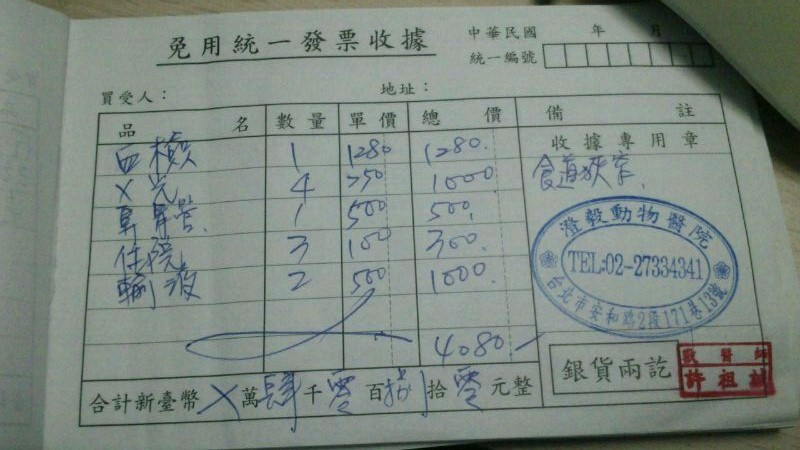 免用統一發票收據
中華民國 年 月
統一編號
買受人： 地址：
品名 數量 單價 總價 備註
收據專用章
血檢 1 1280 1280.
X光 4 250 1000.
鼻胃管. 1 500 500.
住院 3 100 300.
輸液 2 500 1000
4080
食道狹窄.
澄毅動物醫院
TEL:02-27334341
台北市安和路2段171巷13號
銀貨兩訖
獸醫師
許祖
合計新臺幣X萬肆千零百捌拾零元整